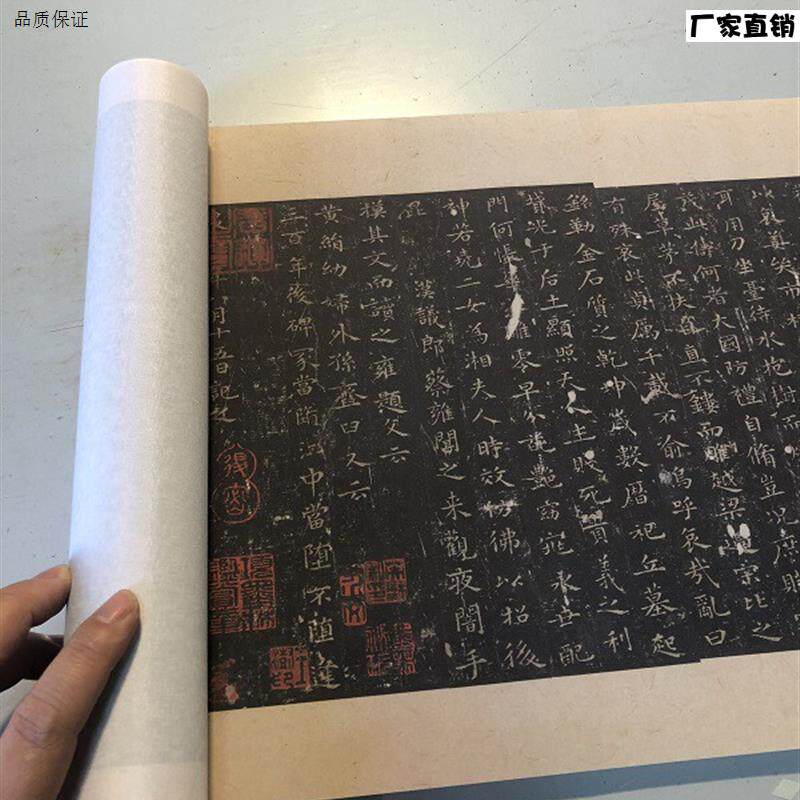 品质保证
厂家直销
耳用刀坐臺待水抱樹而
茂此儔何者大國防禮自脩豈況庶賤
屋草茅不扶自直不鏤而雕越梁過宋比之
有殊哀此貞厲千載不渝嗚呼哀哉亂曰
銘勒金石質之乾坤歲數曆祀丘墓起
墳光于后土顯照天人生賤死貴義之利
門何悵華落雕零早分葩艷窈窕永世配
神若堯二女為湘夫人時效髣彿以招後
昆
漢議郎蔡雍聞之来觀夜闇手
摸其文而讀之雍題文云
黃絹幼婦外孫齏臼又云
三百年後碑冢當墮江中當墮不墮逢
月十五日記之